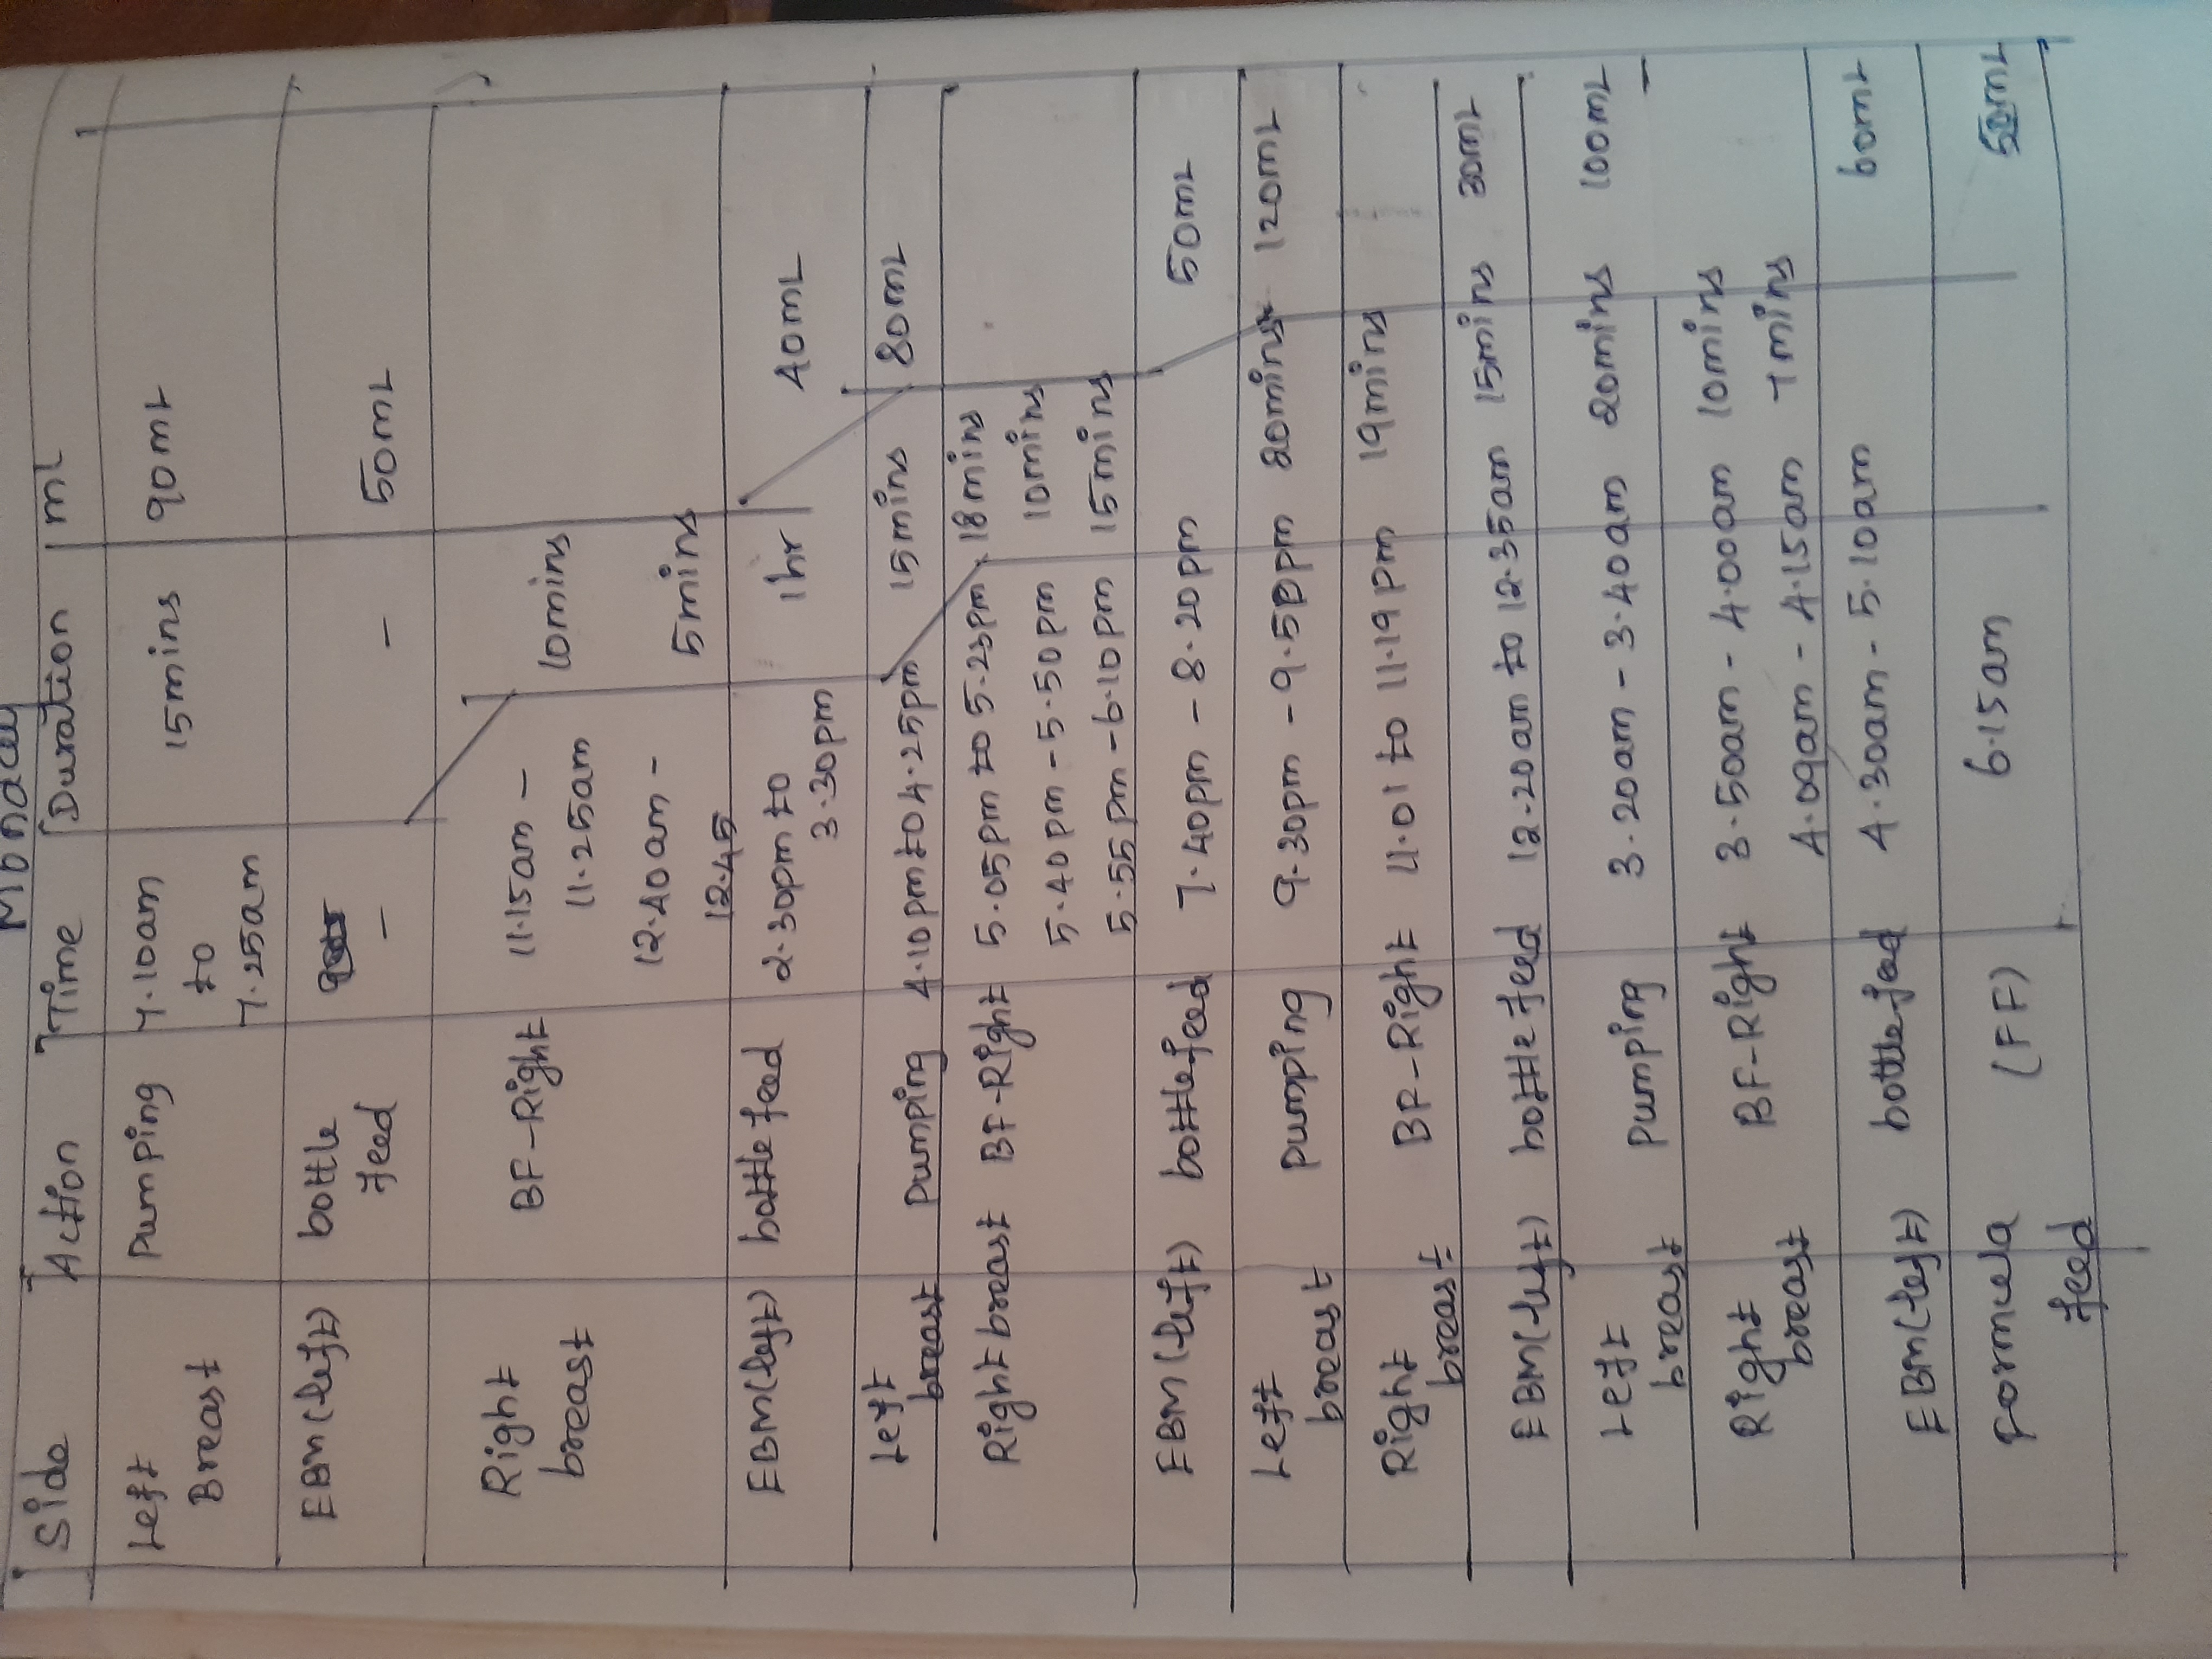 Monday
Side Action Time Duration ml
Left Pumping 7.10am 15mins 90mL
Breast to
7.25am
EBM(left) bottle - - 50mL
feed
Right BF-Right 11.15am - 10mins
breast 11.25am
12.40am - 5mins
12.45
EBM(left) bottle feed 2.30pm to 1hr 40mL
3.30pm
Left Pumping 4.10pm to 4.25pm 15mins 80mL
breast
Right breast BF-Right 5.05pm to 5.23pm 18mins
5.40pm - 5.50pm 10mins
5.55pm - 6.10pm 15mins
EBM(left) bottle feed 7.40pm - 8.20pm 50mL
Left Pumping 9.30pm - 9.50pm 20mins 120mL
breast
Right BF-Right 11.01 to 11.19pm 19mins
breast
EBM(left) bottle feed 12.20am to 12.35am 15mins 30mL
Left Pumping 3.20am - 3.40am 20mins 100mL
breast
Right BF-Right 3.50am - 4.00am 10mins
breast 4.09am - 4.15am 7mins
EBM(left) bottle feed 4.30am - 5.10am 60mL
Formula (FF) 6.15am 50mL
feed